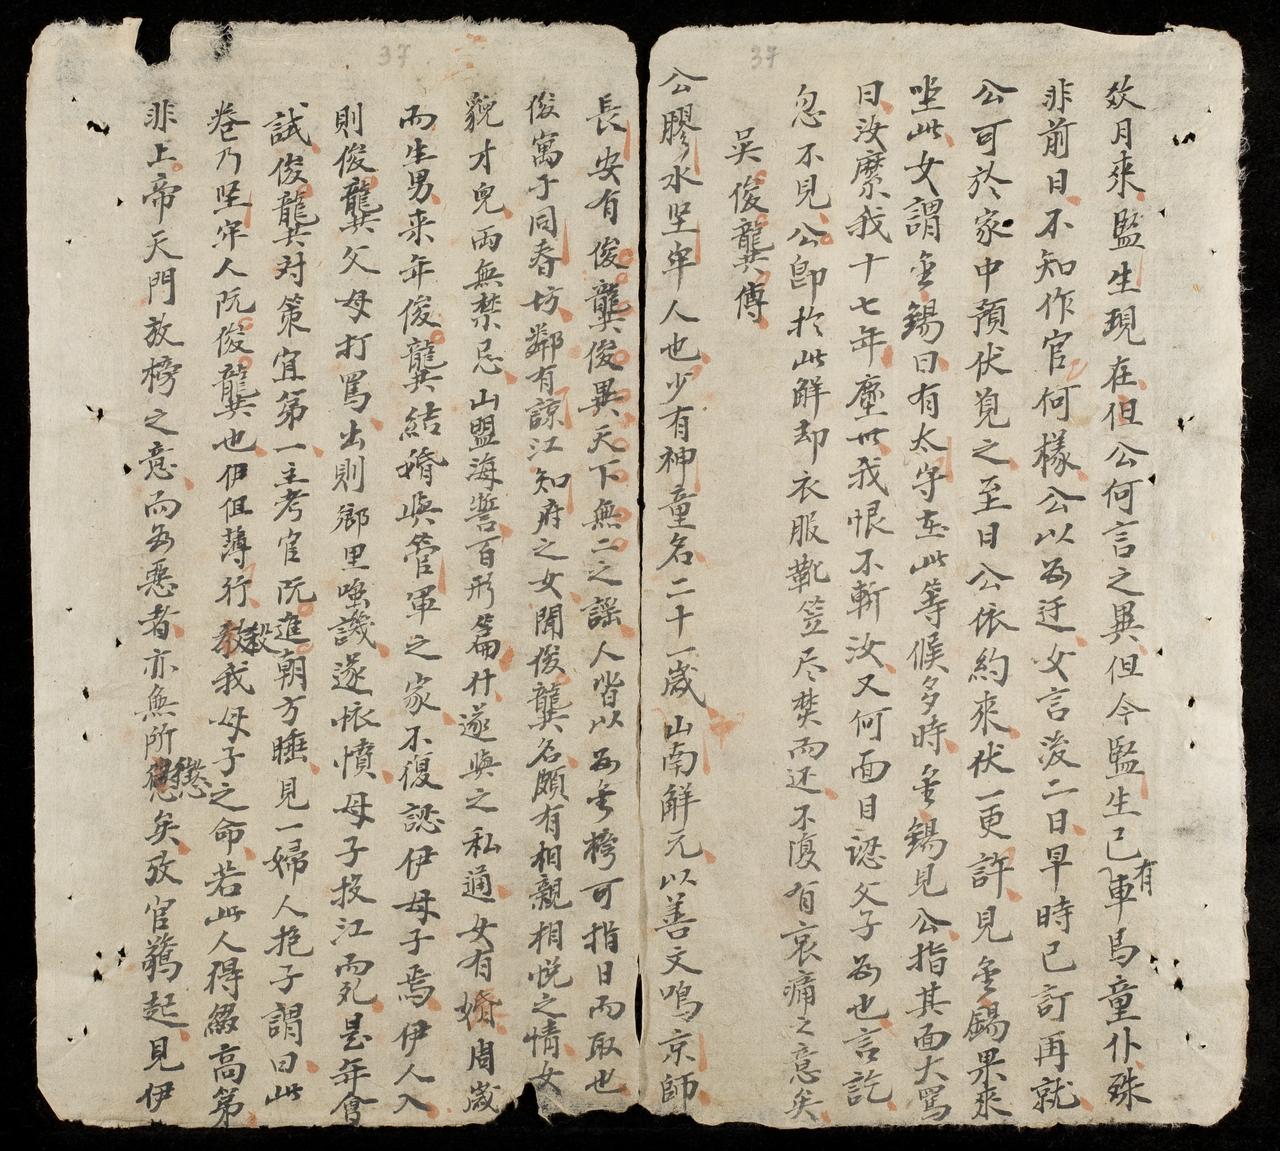 37
37
效月來監生現在但公何言之異但今監生已有車馬童仆殊
非前日不知作官何樣公以為迂女言後二日早時已訂再就
公可於家中預伏覓之至日公依約來伏一更許見金錫果來
坐此女謂金錫曰有太守在此等候多時金錫見公指其面大罵
曰汝縻我十七年塵世我恨不斬汝又何面目認父子為也言訖
忽不見公卽於此解却衣服靴笠尽焚而还不復有哀痛之意矣
吳俊龔傳
公膠水坚牢人也少有神童名二十一歲山南解元以善文鳴京師
長安有俊龔俊異天下無二之謡人皆以為登榜可指日而取也
俊寓于同春坊鄰有諒江知府之女聞俊龔名頗有相親相悦之情女
貌才兒両無禁忌山盟海誓百形篇什遂與之私通女有婚周歲
而生男来年俊龔結婚與管軍之家不復認伊母子焉伊人入
則俊龔父母打罵出則鄉里嗤譏遂恨憤母子投江而死是年會
試俊龔对策宜第一主考官阮進朝方睡見一婦人抱子謂曰此
卷乃坚牢人阮俊龔也伊但薄行殺我母子之命若此人得綴高第
非上帝天門放榜之意而為惡者亦無所懲矣攷官驚起見伊